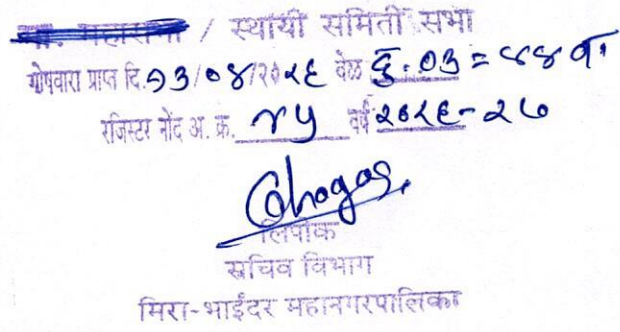 मा. महासभा / स्थायी समिती सभा
गोषवारा प्राप्त दि. १३/०४/२०२६ वेळ दु. ०३=४४ वा.
रजिस्टर नोंद अ. क्र. ४५ वर्ष २०२६-२७
लिपीक
सचिव विभाग
मिरा-भाईंदर महानगरपालिका